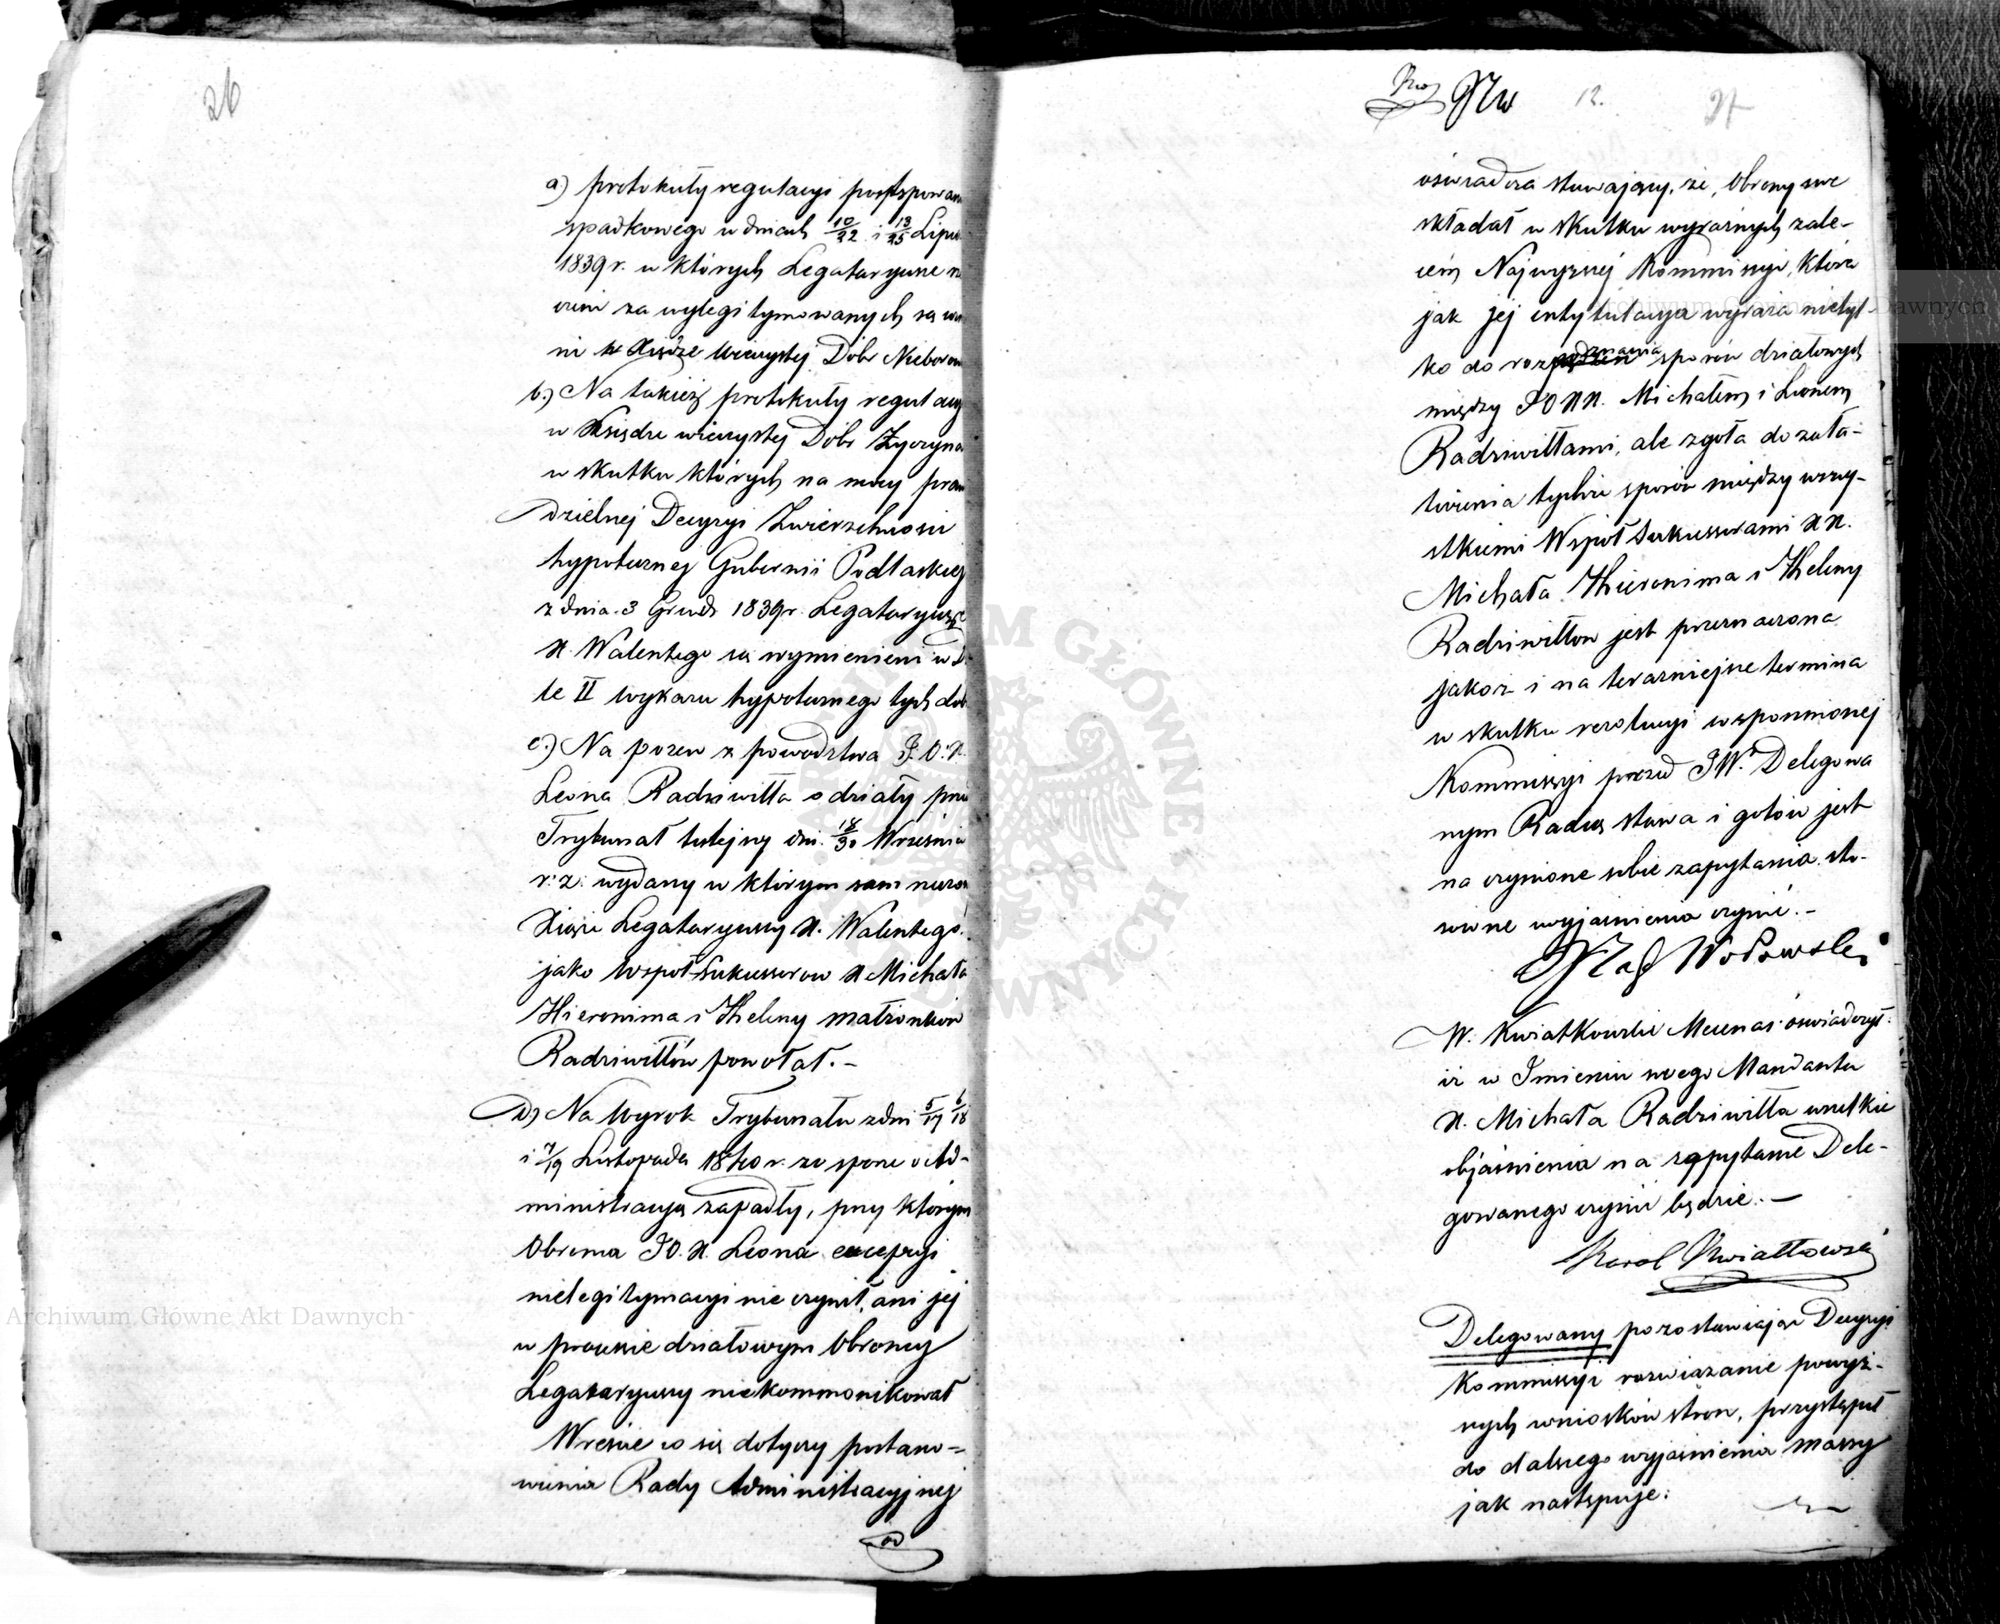 26
a) protokuły regulacyi postępowan
spadkowego w dniach 10/22 i 13/25 Lipca
1839 r. w których Legataryusze n
czeni za wylegitymowanych są um
ni w Księdze wieczystej Dóbr Nieborow
b.) Na takież protokuły regulacyj
w Księdze wieczystej Dóbr Życzyna
w skutku których na mocy praw
dzielnej Decyzyi Zwierzchności
hypotecznej Gubernii Podlaskiej
z dnia 3 Grud. 1839 r. Legataryusze
X. Walentego są wymienieni w D
le II wykazu hypotecznego tych dób
c.) Na pozew z powództwa J. O. X.
Leona Radziwiłła o działy prze
Trybunał tutejszy dni. 18/30 Września
r. z. wydany w którym sam nuzo
Xiąże Legataryuszy X. Walentego
jako Współ-Sukcessorow X Michała
Hieronima i Heleny małżonków
Radziwiłłów powołał. –
d) Na Wyrok Trybunału z dni 5/17 6/18
i 7/19 Listopada 1840 r. ze sporu o Ad-
ministracyą zapadły, przy którym
Obrońca JO. X. Leona excepcyi
nielegitymacyi nie czynił, ani jej
w processie działowym Obrońcy
Legataryuszy niekommonikował
Wreście co się dotyczy postano=
wienia Rady Administracyjnej
12.
27
oświadcza stawający, że, Obrony swe
składał w skutku wyraźnych zale-
ceń Najwyższej Kommissyi, która
jak jej intytulacya wyraża nietyl-
ko do rozpoznania sporów działowych
między JO XX. Michałem i Leonem
Radziwiłłami, ale zgoła do zała-
twienia tychże sporów między wszy-
stkiemi Współ Sukcessorami XX.
Michała Hieronima i Heleny
Radziwiłłów jest przeznaczona
jakoż i na teraźniejsze termina
w skutku rezolucyi wspomnionej
Kommissyi przed JW. Delegowa
nym Radcą stawa i gotów jest
na czynione sobie zapytania sto-
sowne wyjaśnienia czynić. –
Wołowski
W. Kwiatkowski Mecenas oświadczył:
iż w Imieniu swego Mandanta
X. Michała Radziwiłła wszelkie
objaśnienia na zapytanie Dele-
gowanego czynić będzie. –
Karol Kwiatkowski
Delegowany pozostawiając Decyzyi
Kommissyi rozwiązanie powyż-
szych wniosków stron, przystąpił
do dalszego wyjaśnienia massy
jak następuje:
Archiwum Główne Akt Dawnych
Archiwum Główne Akt Dawnych
ARCHIWUM GŁÓWNE AKT DAWNYCH